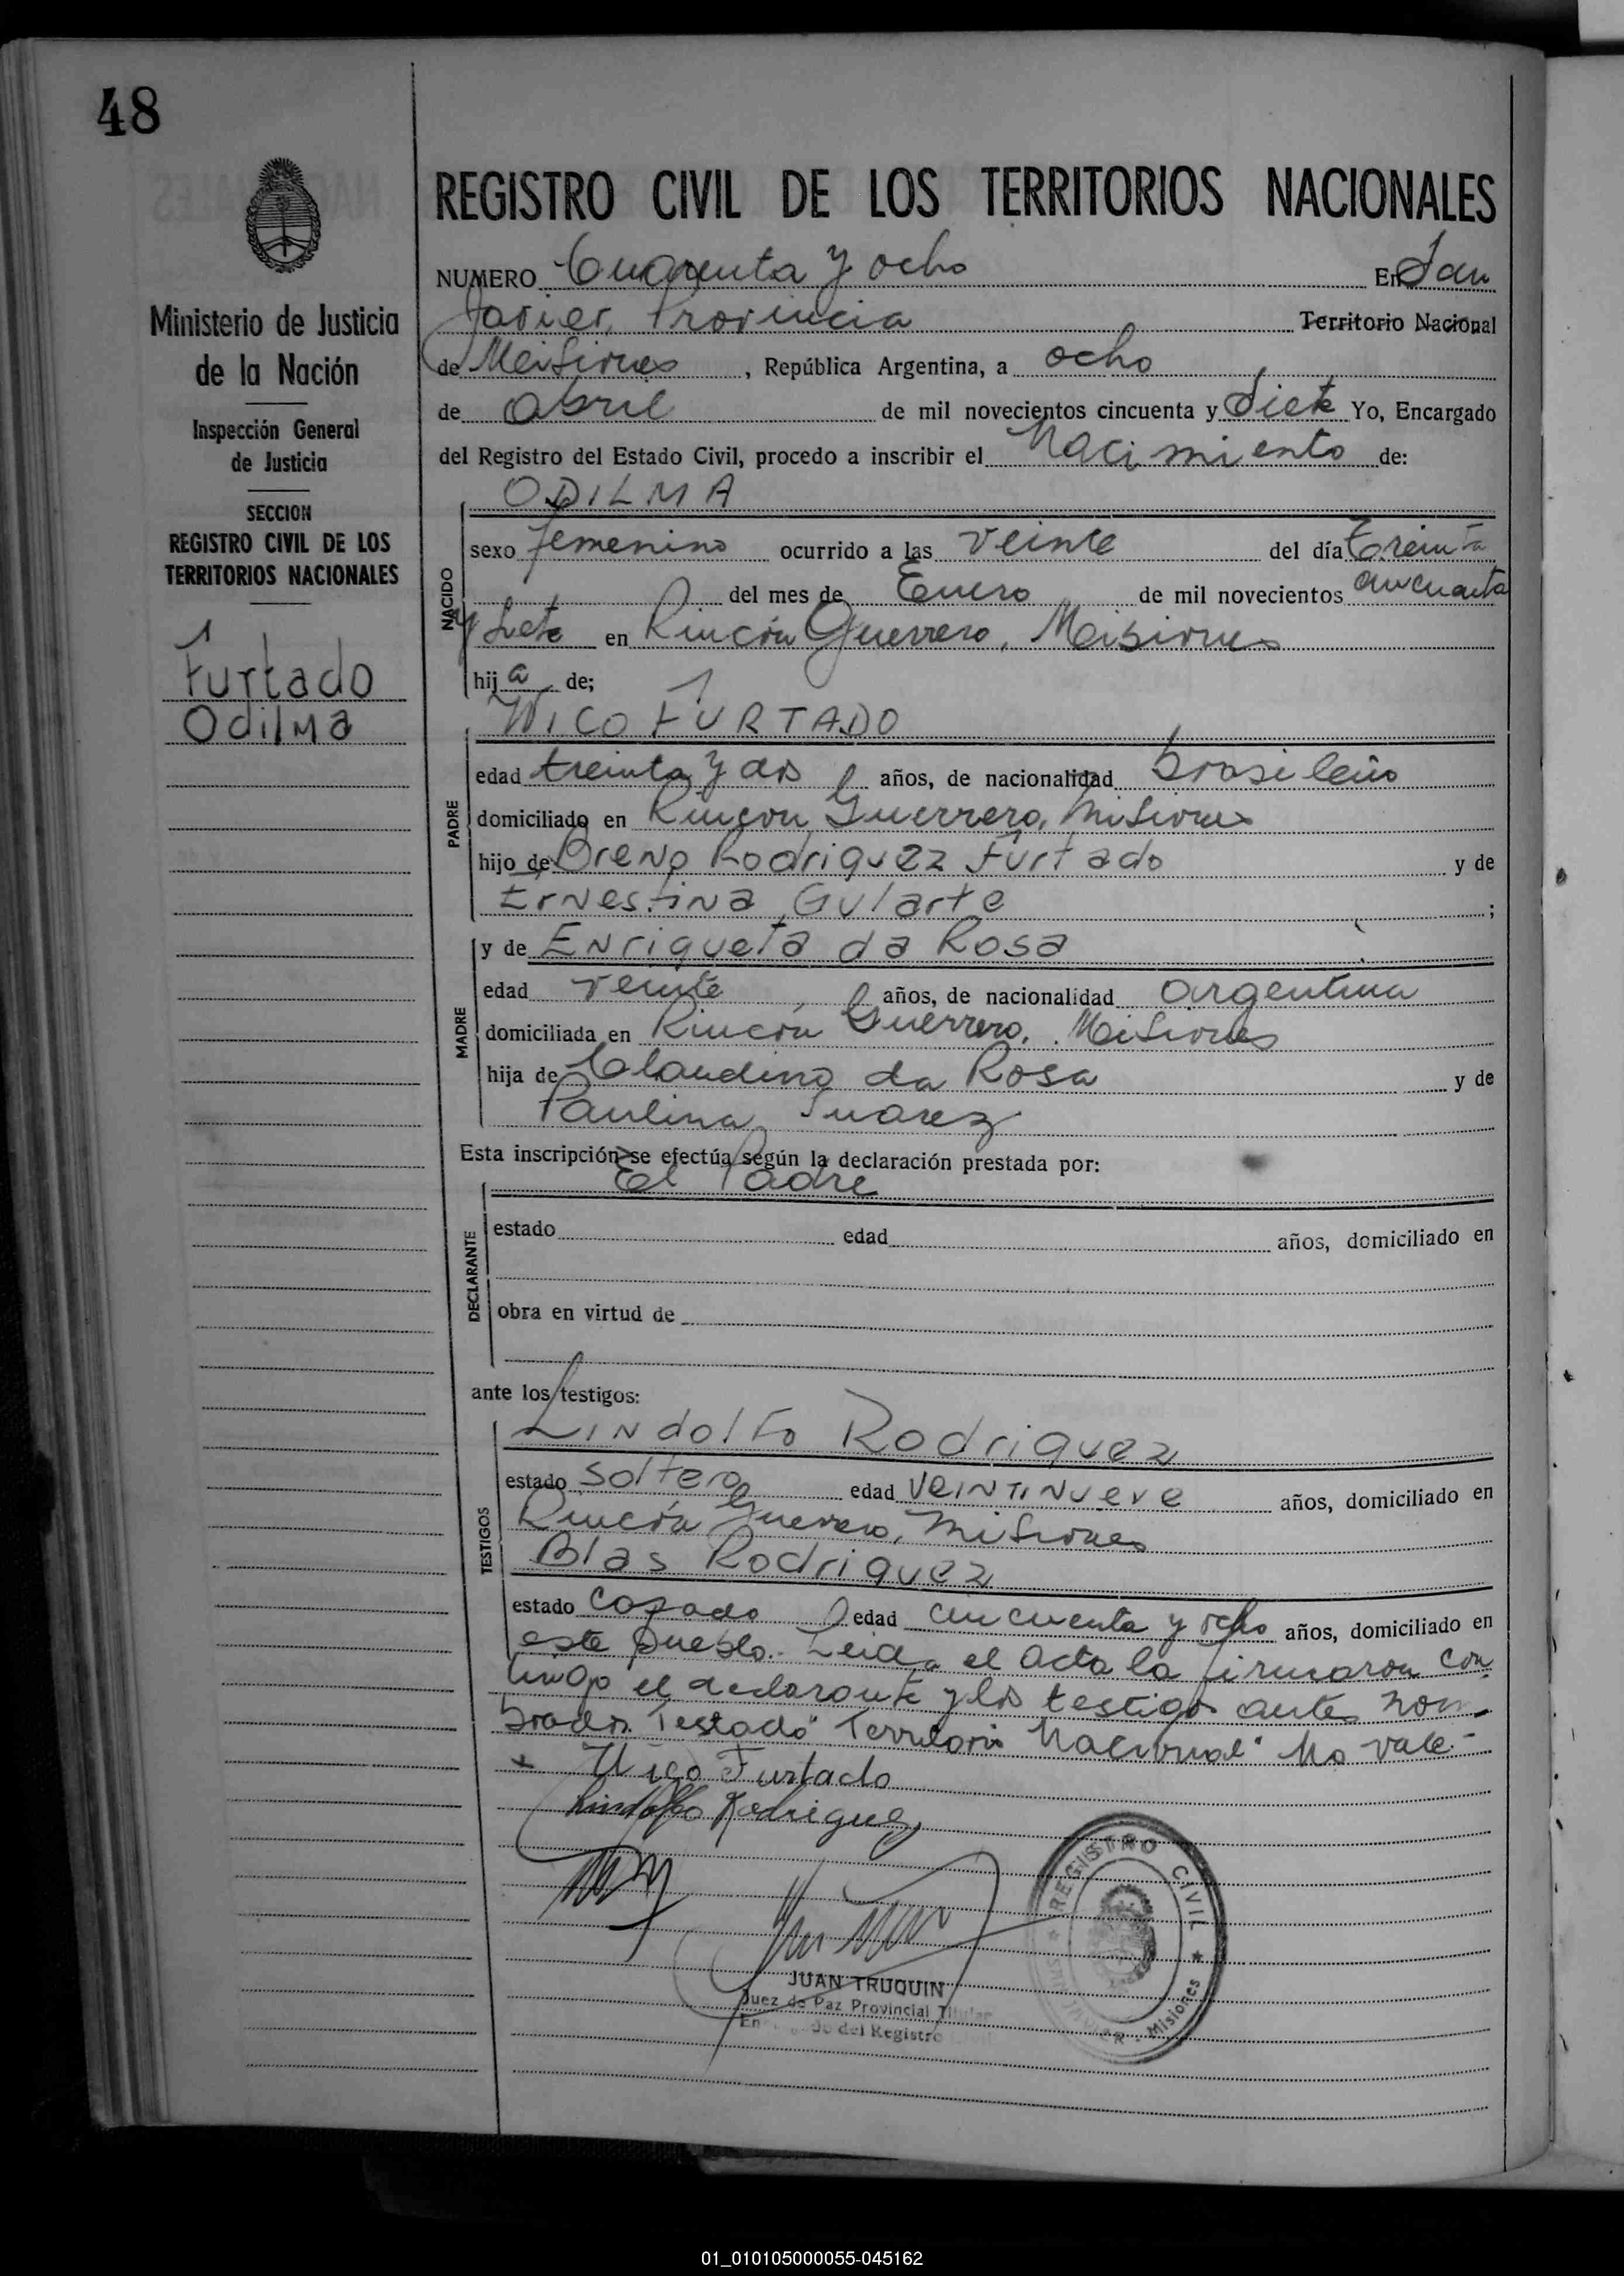 48
Ministerio de Justicia
de la Nación
Inspección General
de Justicia
SECCION
REGISTRO CIVIL DE LOS
TERRITORIOS NACIONALES
Furtado
Odilma
REGISTRO CIVIL DE LOS TERRITORIOS NACIONALES
NUMERO Cuarenta y ocho En San
Javier, Provincia Territorio Nacional
de Misiones, República Argentina, a ocho
de abril de mil novecientos cincuenta y siete Yo, Encargado
del Registro del Estado Civil, procedo a inscribir el Nacimiento de:
ODILMA
NACIDO
sexo femenino ocurrido a las veinte del día treinta
del mes de Enero de mil novecientos cincuenta
y siete en Rincón Guerrero, Misiones
hija de;
PADRE
FURTADO
edad treinta y dos años, de nacionalidad brasileño
domiciliado en Rincon Guerrero, Misiones
hijo de Breno Rodriguez Furtado y de
Ernestina Gularte ;
MADRE
y de Enriqueta da Rosa
edad veinte años, de nacionalidad argentina
domiciliada en Rincón Guerrero, Misiones
hija de Claudino da Rosa y de
Paulina Suarez
Esta inscripción se efectúa según la declaración prestada por:
El Padre
DECLARANTE
estado edad años, domiciliado en
obra en virtud de
ante los testigos:
TESTIGOS
Lindolfo Rodriguez
estado soltero edad veintinueve años, domiciliado en
Rincón Guerrero, Misiones
Blas Rodriguez
estado casado edad cincuenta y ocho años, domiciliado en
este pueblo. Leida el acta la firmaron con
migo el declarante y los testigos antes nom-
brados. Testado "Territorio Nacional" No vale.-
Furtado
Lindolfo Rodriguez
JUAN TRUQUIN
Juez de Paz Provincial Titular
Encargado del Registro Civil
REGISTRO CIVIL
Misiones
01_010105000055-045162